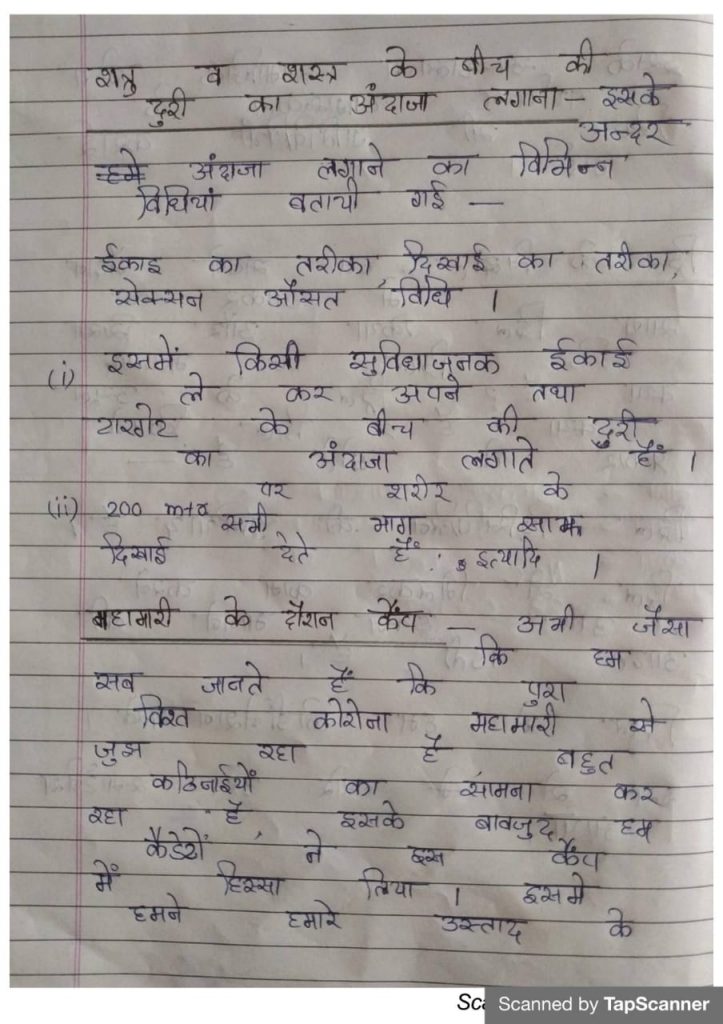 शत्रु व शस्त्र के बीच की
दुरी का अंदाजा लगाना – इसके
अन्दर
हमे अंदाजा लगाने का विभिन्न
विधियां बतायी गई —
ईकाइ का तरीका, दिखाई का तरीका,
सेक्सन औसत विधि ।
(i) इसमें किसी सुविधाजनक ईकाई
ले कर अपने तथा
टारगेट के बीच की दुरी
का अंदाजा लगाते हैं ।
(ii) 200 mtr पर शरीर के
सभी भाग साफ
दिखाई देते हैं इत्यादि ।
महामारी के दौरान कैंप – अभी जैसा
कि हम
सब जानते हैं कि पुरा
विश्व कोरोना महामारी से
जुझ रहा है बहुत
कठिनाईयों का सामना कर
रहा है, इसके बावजुद हम
कैडेटों ने इस कैंप
में हिस्सा लिया । इसमे
हमने हमारे उस्ताद के
Scanned by TapScanner